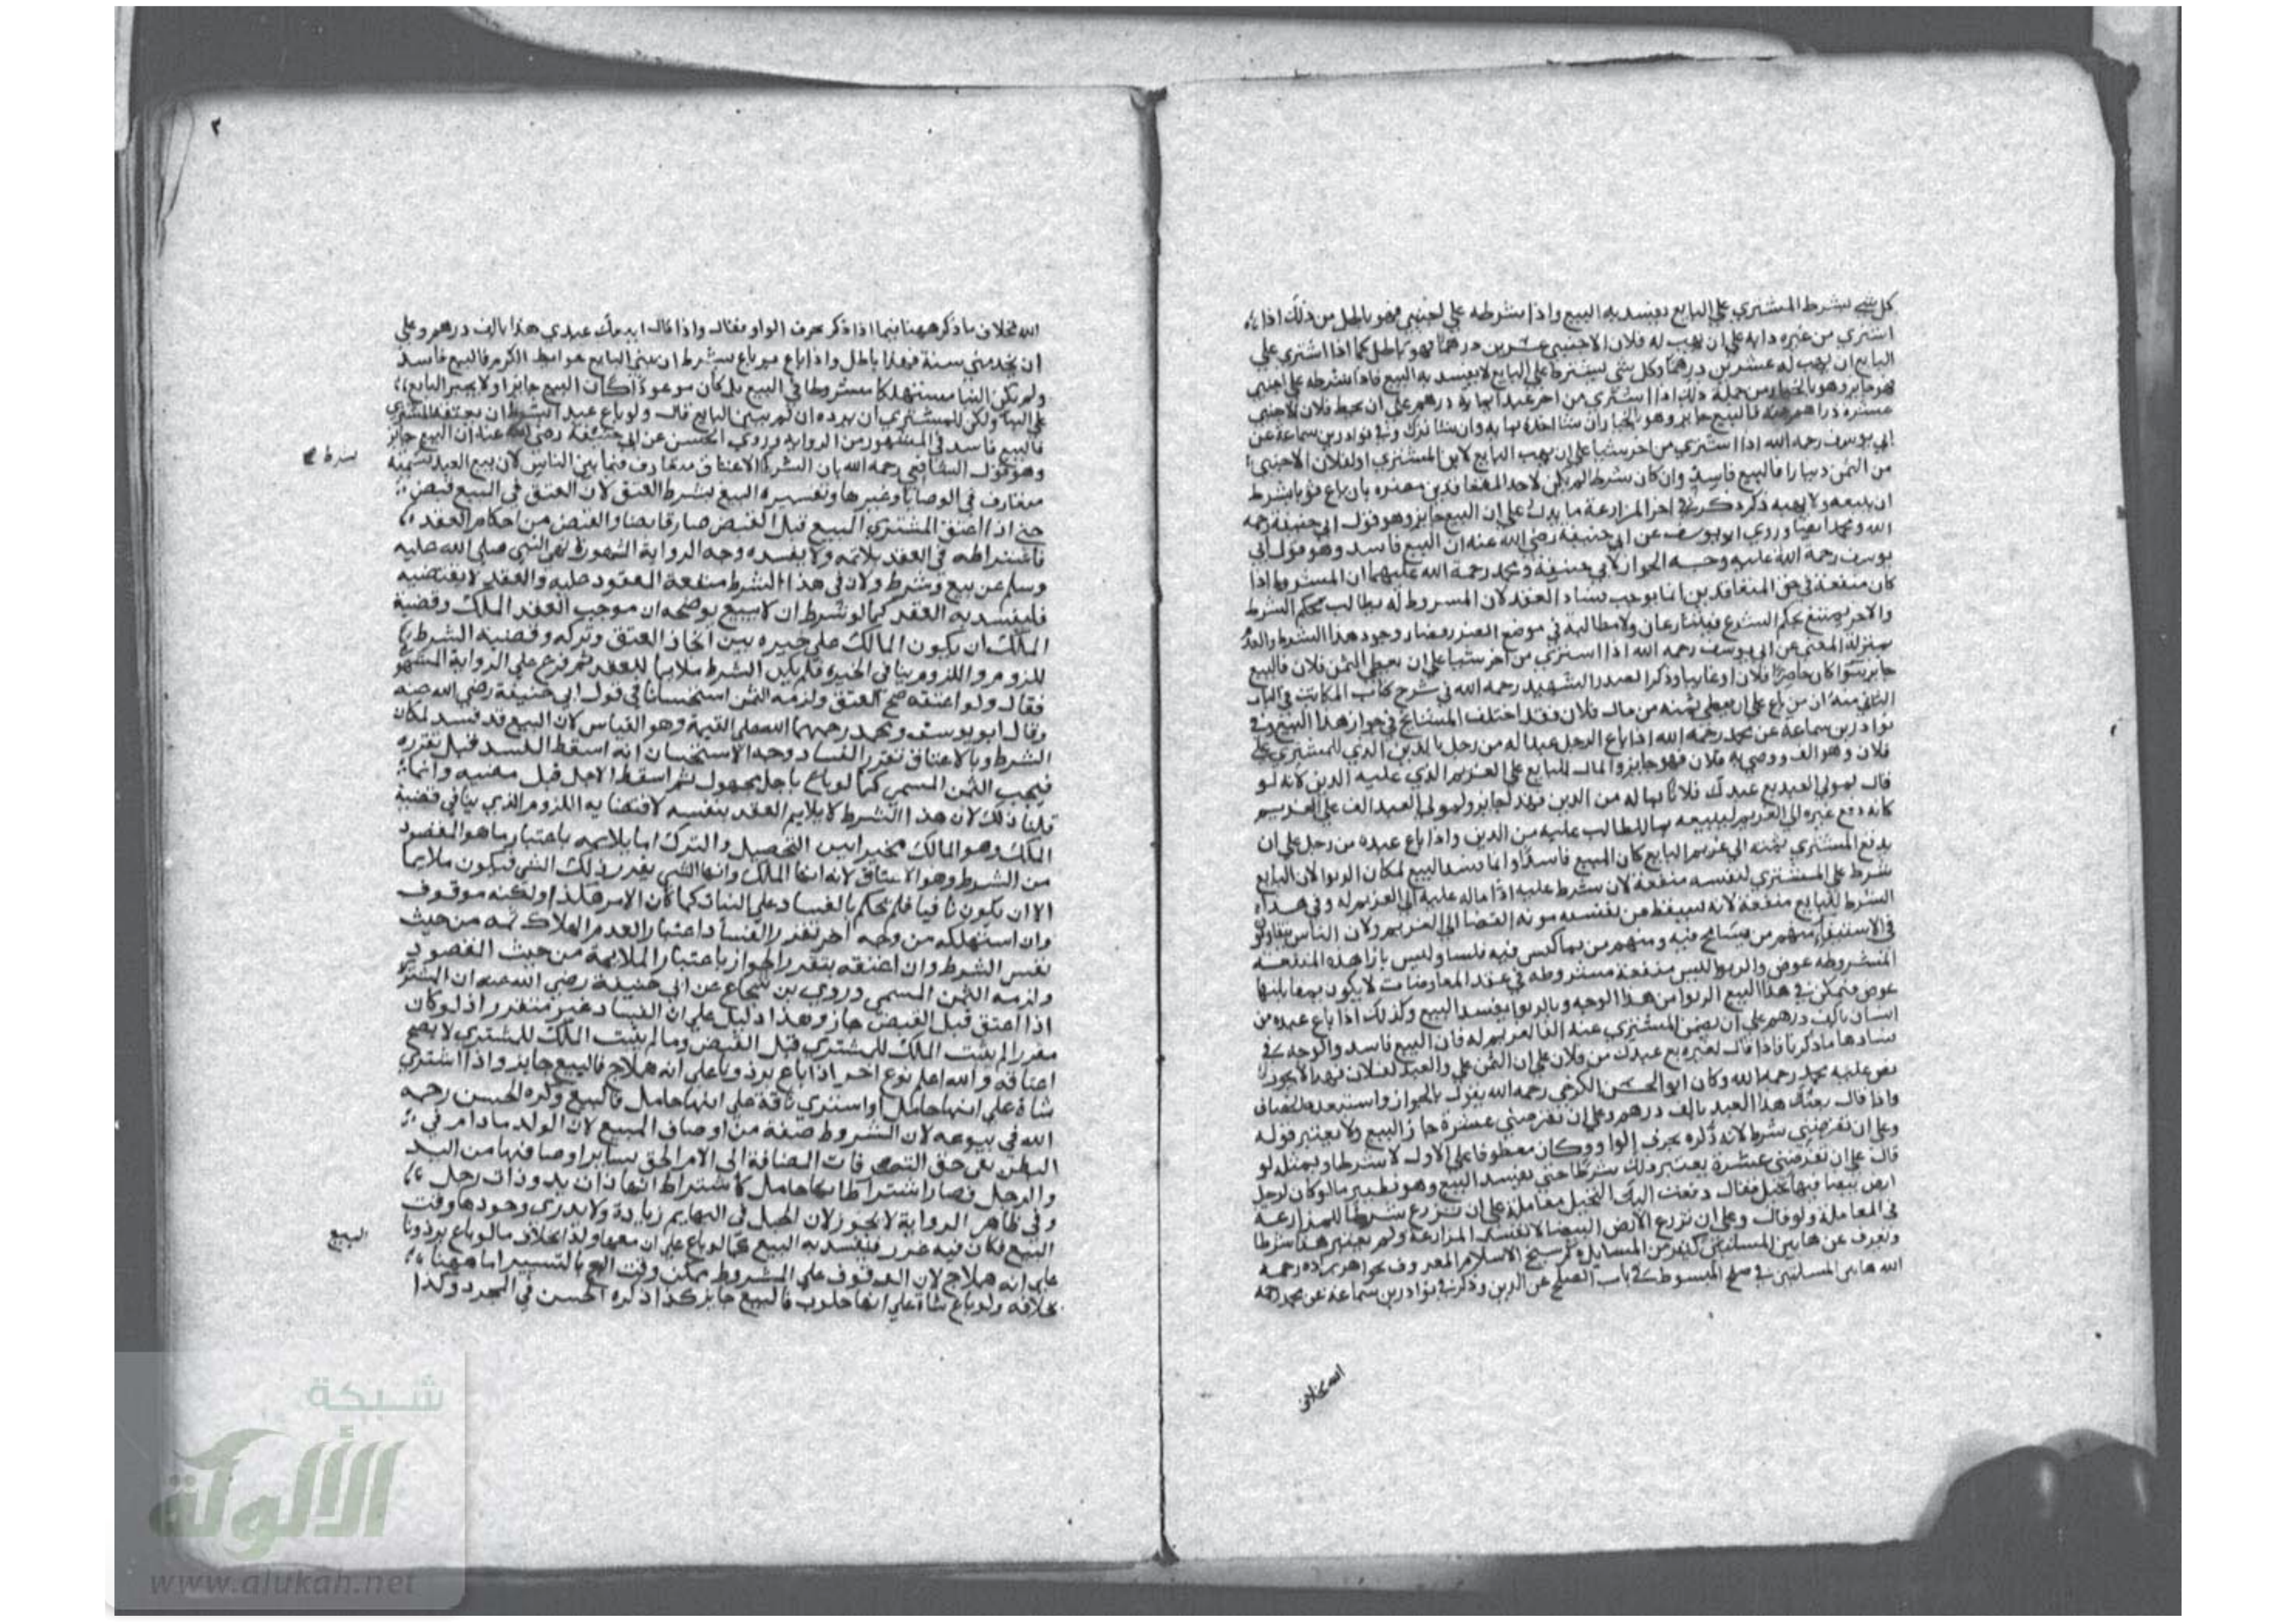 كل شيء يشرط المشتري علي البايع يفسد به البيع واذا شرطه علي اجنبي فهو باطل من ذلك اذا
اشتري من غيره دابه علي ان يهب له فلان الاجنبي عشرين درهما فهو باطل كما اذا اشتري علي
البايع ان يهب له عشرين درهما وكل شي يشترط علي البايع لا يفسد به البيع فاذا شرطه علي اجنبي
فهو جايز وهو بالخيار من جملة ذلك اذا اشتري من اخر عبدا بماية درهم علي ان يحط فلان الاجنبي
عشرة دراهم عنه فالبيع جايز وهو بالخيار ان شا اخذه بمايه وان شا ترك وفي نوادر بن سماعة عن
ابي يوسف رحمه الله اذا اشتري من اخر شيا علي ان يهب البايع لابن المشتري او لفلان الاجنبي
من الثمن دينارا فالبيع فاسد وان كان شرط لم يكن لاحد المتعاقدين مضره بان باع ثوبا بشرط
ان يبيعه ولا يهبه ذكر في اخر المزارعة ما يدل علي ان البيع جايز وهو قول ابي حنيفة رحمه
الله ومحمد ايضا وروي ابو يوسف عن ابي حنيفة رضي الله عنه ان البيع فاسد وهو قول ابي
يوسف رحمة الله عليه وجه الجواز لابي حنيفة ومحمد رحمة الله عليهما ان المشروط اذا
كان منفعة في حق المتعاقدين انما يوجب فساد العقد لان المشروط له يطالب بحكم الشرط
والاخر يمتنع بحكم الشرع فيتنازعان ولا مطالبة في موضع الضرر فصار وجود هذا الشرط والعدم
بمنزلة المعني عن ابي يوسف رحمه الله اذا اشتري من اخر شيا علي ان يعطي الثمن فلان فالبيع
جايز سوا كان حاضرا فلان او غايبا وذكر الصدر الشهيد رحمه الله في شرح كتاب المكاتب في الباب
الثاني منه ان من باع علي ان يعطي ثمنه من مال فلان فقد اختلف المشايخ في جواز هذا البيع وفي
نوادر بن سماعة عن محمد رحمه الله اذا باع الرجل عبدا له من رجل بالدين الذي للمشتري علي
فلان وهو الف ورضي به فلان فهو جايز والمال للبايع علي الغريم الذي عليه الدين لانه لو
قال لمولي العبد بع عبدك فلانا بما له من الدين فهذا جايز ولمولي العبد الف علي الغريم
كانه دفع عبده الي الغريم ليبيعه بما للطالب عليه من الدين واذا باع عبده من رجل علي ان
يدفع المشتري ثمنه الي غريم البايع كان البيع فاسدا وانما فسد البيع لمكان الربوا لان البايع
شرط علي المشتري لنفسه منفعة لان شرط عليه اذا ماله عليه الي الغريم له وفي هذا
الشرط للبايع منفعة لانه يسقط عن نفسه مونة القضا الي الغريم ولان الناس يتفاوتون
في الاستيفا منهم من يسامح فيه ومنهم من يماكس فيه فلسا وليس بازا هذه المنفعة
المشروطه عوض والربوا ليس منفعة مشروطه في عقد المعاوضات لا يكون بمقابلتها
عوض فتمكن في هذا البيع الربوا من هذا الوجه وبالربوا يفسد البيع وكذلك اذا باع عبده من
انسان بالف درهم علي ان يضمن المشتري عنه الفا لغريم له فان البيع فاسد والوجه في
فسادها ما ذكرنا فاذا قال لغيره بع عبدك من فلان علي ان الثمن علي والعبد لفلان فهذا لا يجوز
نص عليه محمد رحمه الله وكان ابو الحسن الكرخي رحمه الله يقول بالجواز واستبعده الخصاف
واذا قال بعتك هذا العبد بالف درهم وعلي ان تقرضني عشرة جاز البيع ولا يعتبر قوله
وعلي ان تقرضني شرط لانه ذكره بحرف الواو وكان معطوفا علي الاول لا شرطا وبمثله لو
قال علي ان تقرضني عشرة يعتبر ذلك شرطا حتي يفسد البيع وهو نظير ما لو كان لرجل
ارض بيضا فيها نخيل فقال دفعت اليك النخيل معاملة علي ان تزرع شرطا للمزارعة
في المعاملة ولو قال وعلي ان تزرع الارض البيضا لا تفسد المزارعة ولم يعتبر هذا شرطا
ونعرف عن هاتين المسالتين كثير من المسايل ذكر شيخ الاسلام المعروف بخواهر زاده رحمه
الله هاتين المسالتين في صلح المبسوط في باب الصلح عن الدين وذكر في نوادر بن سماعة عن محمد رحمه
الله بخلاف
٢
الله بخلاف ما ذكر ههنا فيما اذا ذكر بحرف الواو فقال واذا قال ابيعك عبدي هذا بالف درهم وعلي
ان يخدمني سنة فهذا باطل واذا باع باع بشرط ان يبني البايع حوايط الكرم فالبيع فاسد
ولم يكن البنا مشروطا في البيع بل كان موعودا كان البيع جايزا ولا يجبر البايع
علي البنا ولكن للمشتري ان يرده ان لم يبن البايع قال ولو باع عبدا بشرط ان يعتقه المشتري
فالبيع فاسد في المشهور من الرواية وروي الحسن عن ابي حنيفة رضي الله عنه ان البيع جايز
وهو قول الشافعي رحمه الله بان الشرط الاعتاق متعارف فيما بين الناس لان بيع العبد نسمة
متعارف في الوصايا وغيرها وتفسيره البيع بشرط العتق لان العتق في البيع قبض
حتي اذا اعتق المشتري المبيع قبل القبض صار قابضا والقبض من احكام العقد
فاشتراطه في العقد يلائمه ولا يفسده وجه الرواية المشهورة نهي النبي صلي الله عليه
وسلم عن بيع وشرط ولان في هذا الشرط منفعة المعقود عليه والعقد لا يقتضيه
فليفسد به العقد كما لو شرط ان لا يبيع يوضحه ان موجب العقد الملك وقضية
الملك ان يكون المالك علي خيره بين اتخاذ العتق وتركه وقضية الشرط
اللزوم واللزوم ينافي الخيره فلم يكن الشرط ملايما للعقد ثم فرع علي الرواية المشهورة
فقال ولو اعتقه صح العتق ولزمه الثمن استحسانا في قول ابي حنيفة رضي الله عنه
وقال ابو يوسف ومحمد رحمهما الله عليه القيمة وهو القياس لان البيع قد فسد لمكان
الشرط وبالاعتاق تقرر الفساد وجه الاستحسان انه اسقط المفسد قبل تقرره
فيجب الثمن المسمي كما لو باع باجل مجهول ثم اسقط الاجل قبل مضيه وانما
قلنا ذلك لان هذا الشرط لا يلايم العقد بنفسه لاقتضايه اللزوم الذي ينافي قضية
الملك وهو المالك مخير بين التحصيل والترك اما يلايمه باعتبار ما هو المقصود
من الشرط وهو الاعتاق لانه انها الملك وانها الشي يقرر ذلك الشي فيكون ملايما
الا ان يكون نافيا فلم نحكم بالفساد علي البتات كما كان الامر هكذا ولكنه موقوف
وان استهلكه من وجه اخر تقرر الفساد اعتبارا لعدم الملاك ثمه من حيث
نفس الشرط وان اعتقه يتقرر الجواز باعتبار الملايمة من حيث المقصود
ولزمه الثمن المسمي وروي بن شجاع عن ابي حنيفة رضي الله عنه ان المشتري
اذا اعتق قبل القبض جاز وهذا دليل علي ان الفساد غير متقرر اذ لو كان
مقررا لم يثبت الملك للمشتري قبل القبض وما لم يثبت الملك للمشتري لا يصح
اعتاقه والله اعلم نوع اخر اذا باع برذونا علي انه هملاج فالبيع جايز واذا اشتري
شاة علي انها حامل او اشتري ناقة علي انها حامل فالبيع وذكره الحسن رحمه
الله في بيوعه لان الشروط صفة من اوصاف المبيع لان الولد ما دام في
البطن بقي حق التصرفات المضافة الي الام الحق بساير اوصافها من اليد
والرجل فصار اشتراطها حامل كاشتراط انها ذات يد وذات رجل
وفي ظاهر الرواية لا يجوز لان الحبل في البهايم زيادة ولا يدري وجودها وقت
البيع فكان فيه غرر فيفسد به البيع كما لو باع علي ان معها ولدا بخلاف ما لو باع برذونا
علي انه هملاج لان الوقوف علي المشروط ممكن وقت البيع بالتسيير اما ههنا
بخلافه ولو باع شاة علي انها حلوب فالبيع جايز كذا ذكره الحسن في المجرد وكذا
شرط
البيع
شبكة
الألوكة
www.alukah.net